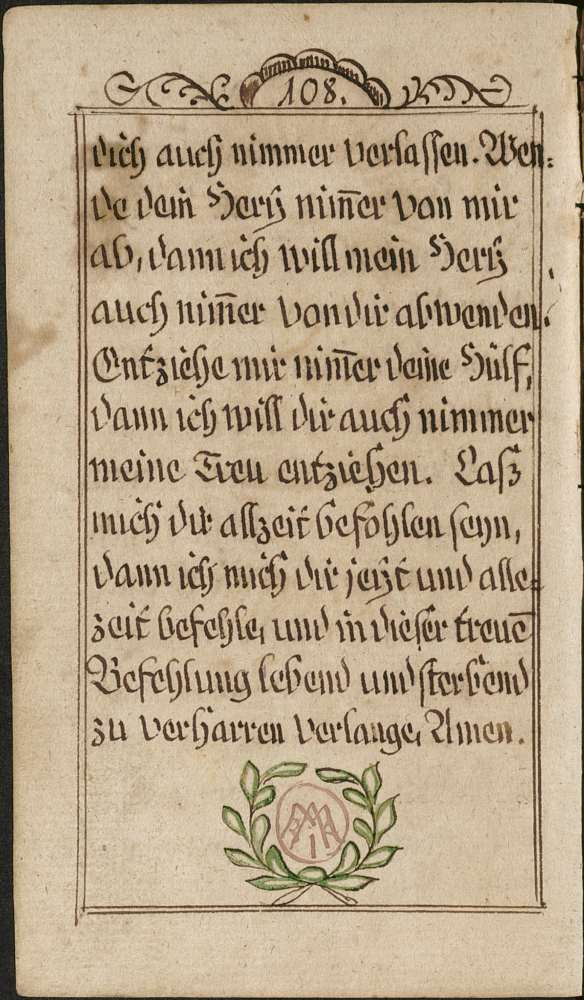 108.
dich auch nimmer verlassen. Wen=
de dein Hertz nim̅er von mir
ab, dann ich will mein Hertz
auch nim̅er von dir abwenden.
Entziehe mir nim̅er deine Hülf,
dann ich will dir auch nimmer
meine Treu entziehen. Laß
mich dir allzeit befohlen seyn,
dann ich mich dir jetzt und alle=
zeit befehle, und in dieser treue̅
Befehlung lebend und sterbend
zu verharren verlange, Amen.